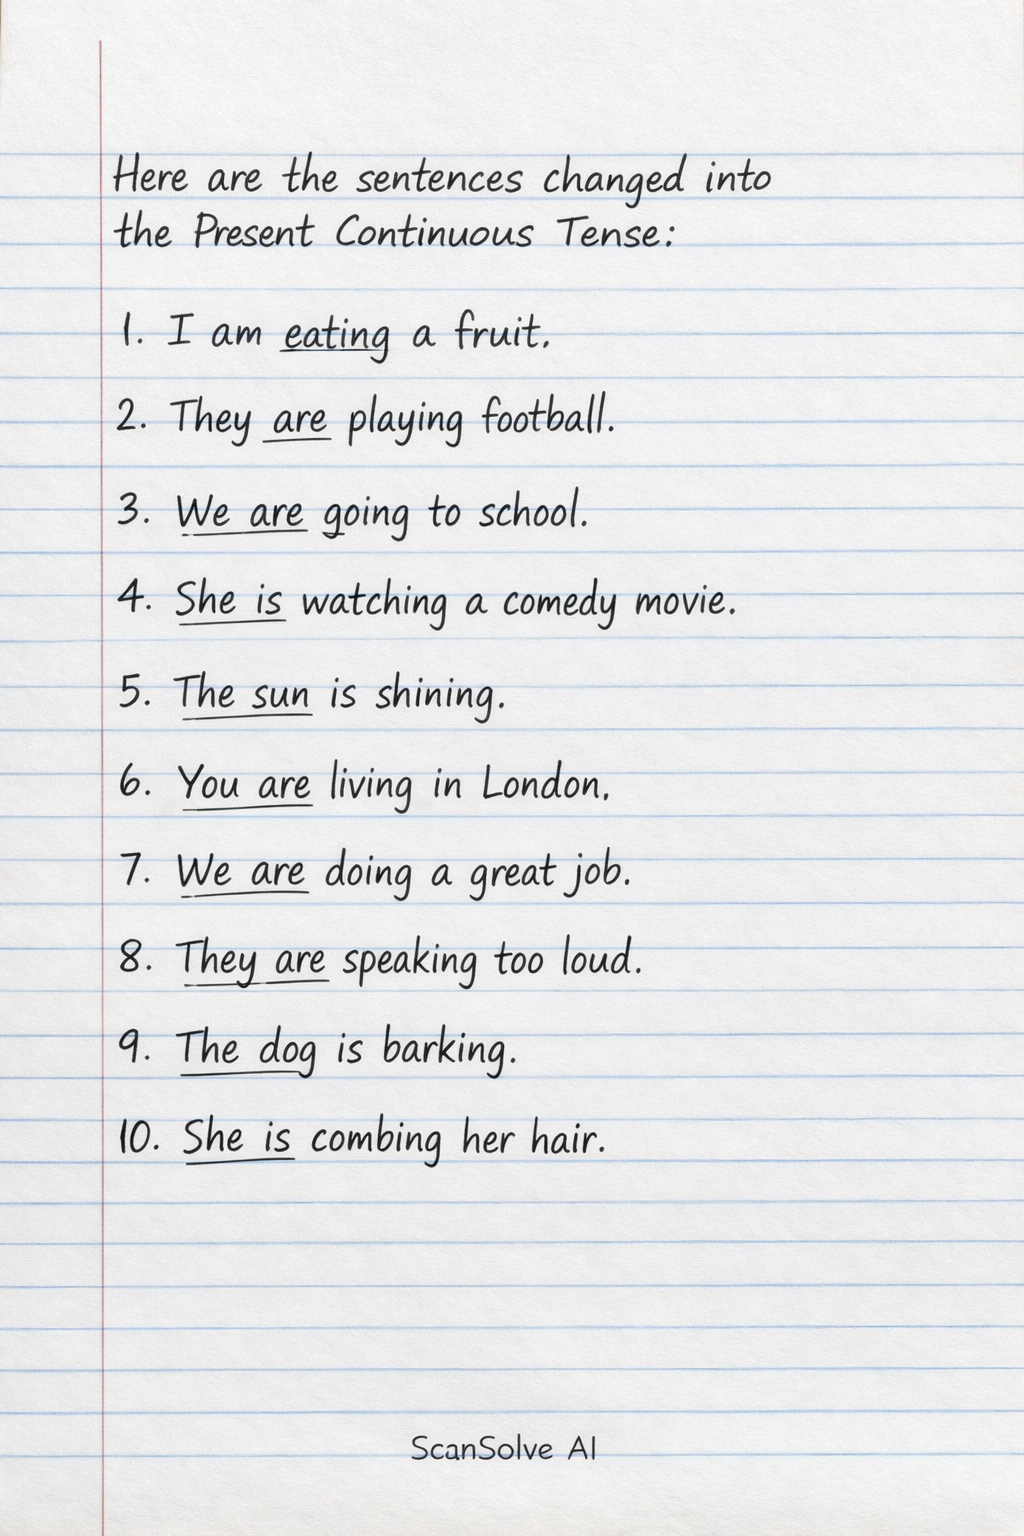 Here are the sentences changed into
the Present Continuous Tense:
1. I am eating a fruit.
2. They are playing football.
3. We are going to school.
4. She is watching a comedy movie.
5. The sun is shining.
6. You are living in London.
7. We are doing a great job.
8. They are speaking too loud.
9. The dog is barking.
10. She is combing her hair.
ScanSolve AI